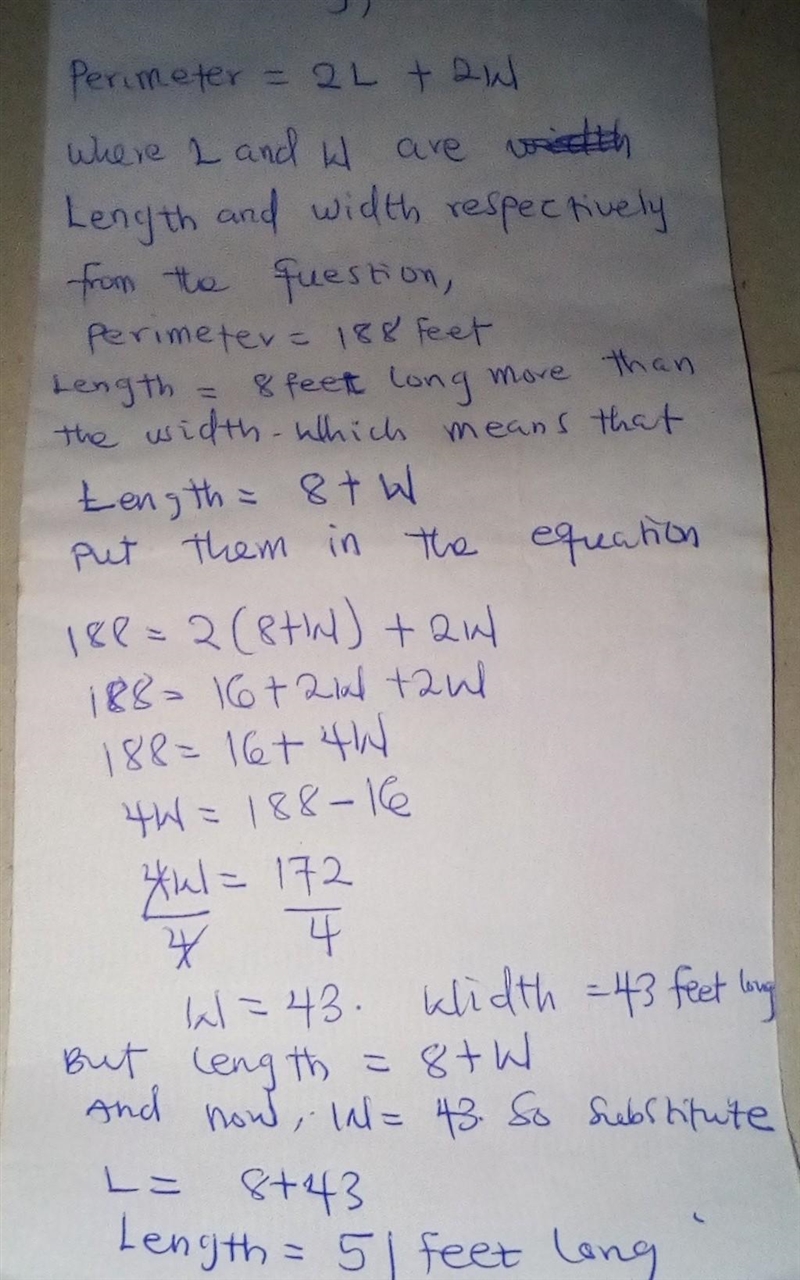 Perimeter = 2L + 2W
Where L and W are
Length and width respectively
from the question,
Perimeter = 188 feet
Length = 8 feet long more than
the width - which means that
Length = 8 + W
Put them in the equation
188 = 2(8+W) + 2W
188 = 16 + 2W + 2W
188 = 16 + 4W
4W = 188 - 16
4W = 172
4 4
W = 43. Width = 43 feet long
But length = 8 + W
And now, W = 43. So substitute
L = 8 + 43
Length = 51 feet long